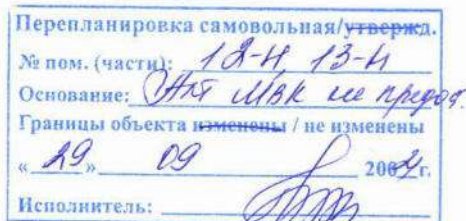 Перепланировка самовольная/утвержд.
№ пом. (части): 12-Н 13-Н
Основание: Акт МВК не предост.
Границы объекта изменены / не изменены
« 29 » 09 200 г.
Исполнитель: